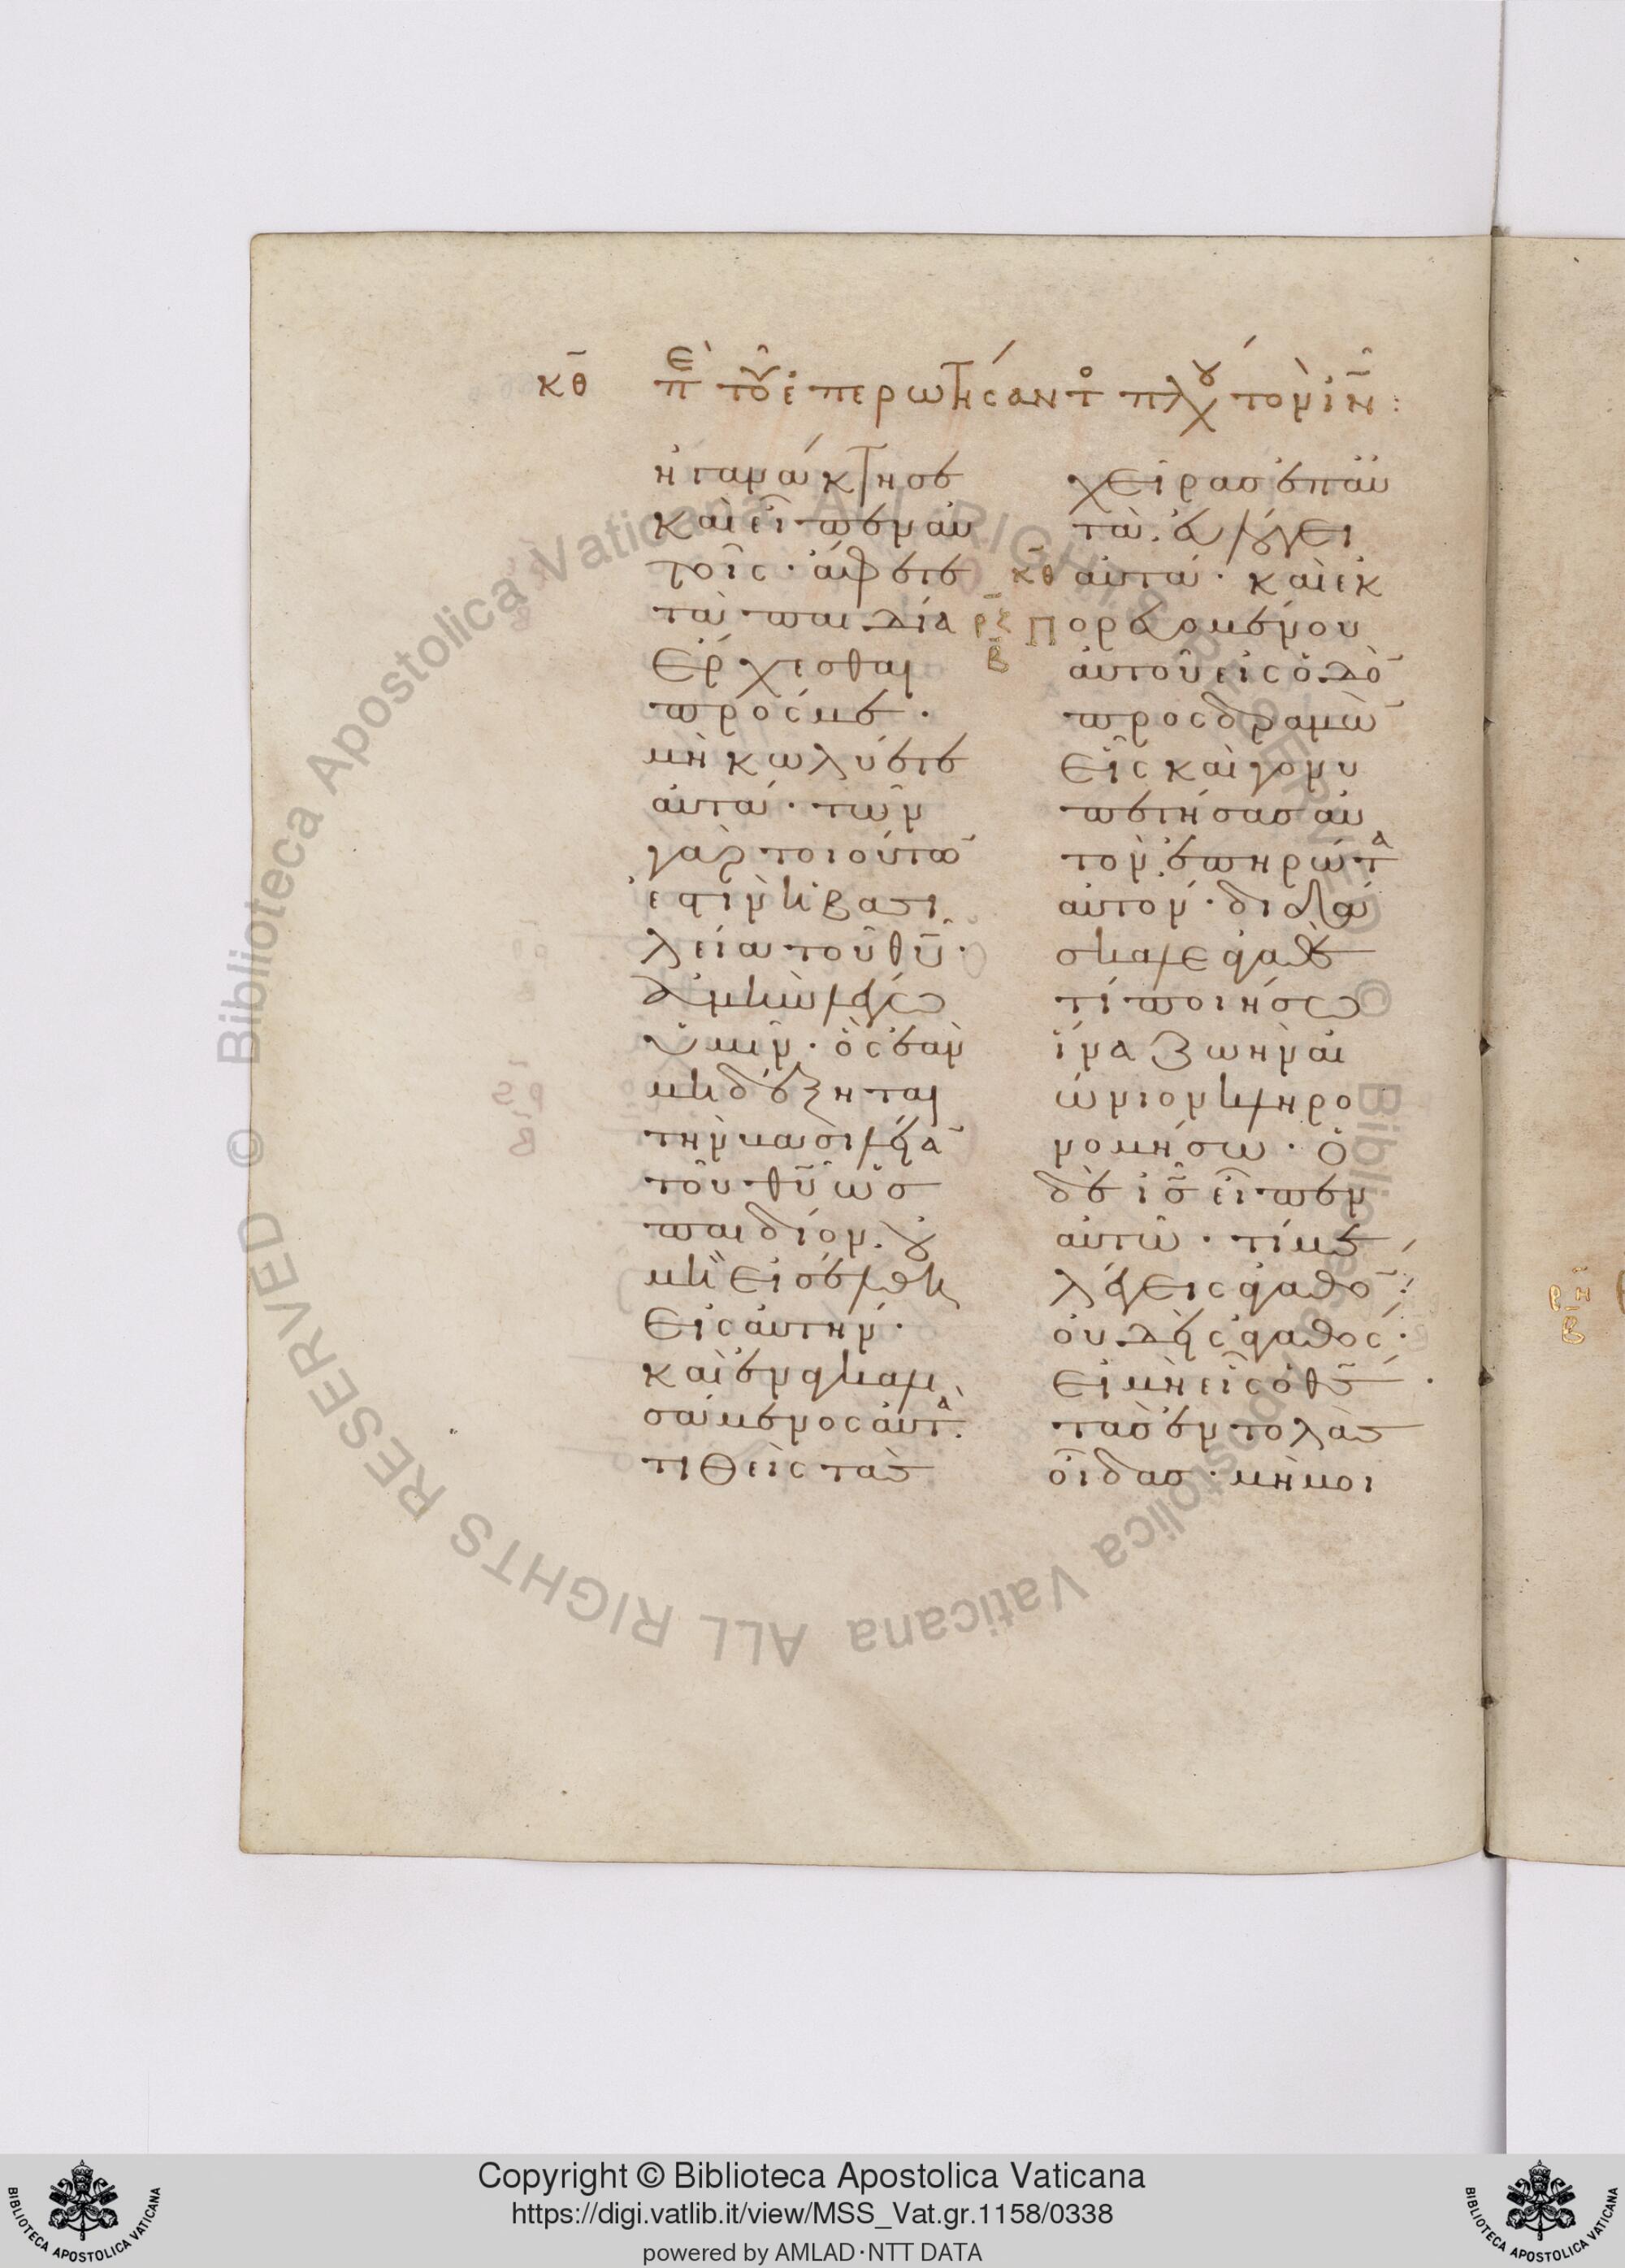 κθ πὲ τοῦ ἐπερωτήσαντο πλου τὸν ἰν:
ἠγανάκτησε
καὶ εἶπεν αὐ
τοῖς· ἄφετε
τὰ παιδία
ἔρχεσθαι
πρός με·
μὴ κωλύετε
αὐτά· τῶν
γὰρ τοιούτω
ἐστὶν ἡ βασι
λεία τοῦ θυ·
ἀμὴν λέγω
ὑμῖν· ὃς ἐὰν
μὴ δέξηται
τὴν βασιλεία
τοῦ θυ ὡς
παιδίον. οὐ
μὴ εἰσέλθη
εἰς αὐτήν·
καὶ ἐναγκαλι
σάμενος αὐτὰ.
τιθεὶς τὰς
χεῖρας ἐπ αὐ
τὰ. εὐλόγει
κθ αὐτά· καὶ ἐκ
ρξ β πορευομένου
αὐτοῦ εἰς ὁδὸ
προσδραμὼ
εἷς καὶ γονυ
πετήσας αὐ
τὸν. ἐπηρώτα
αὐτόν· διδά
σκαλε ἀγαθὲ
τί ποιήσω
ἵνα ζωὴν αἰ
ώνιον κληρο
νομήσω· ὁ
δὲ ις εἶπεν
αὐτῶ· τί με
λέγεις ἀγαθό:
οὐδεὶς ἀγαθός·
εἰ μὴ εἷς ὁ θς·
τὰς ἐντολὰς
οἶδας· μὴ μοι
ρη
β
Copyright © Biblioteca Apostolica Vaticana
https://digi.vatlib.it/view/MSS_Vat.gr.1158/0338
powered by AMLAD·NTT DATA
BIBLIOTECA APOSTOLICA VATICANA
BIBLIOTECA APOSTOLICA VATICANA
© Biblioteca Apostolica Vaticana ALL RIGHTS RESERVED
© Biblioteca Apostolica Vaticana ALL RIGHTS RESERVED